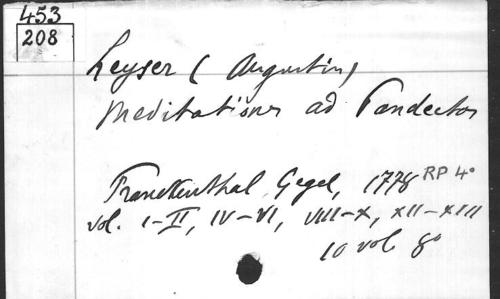 453
208
Leyser (Augustin)
Meditationes ad Pandectas
Franckenthal, Gegel, 1778 RP 4°
vol. I-II, IV-VI, VIII-X, XII-XIII
10 vol 8°